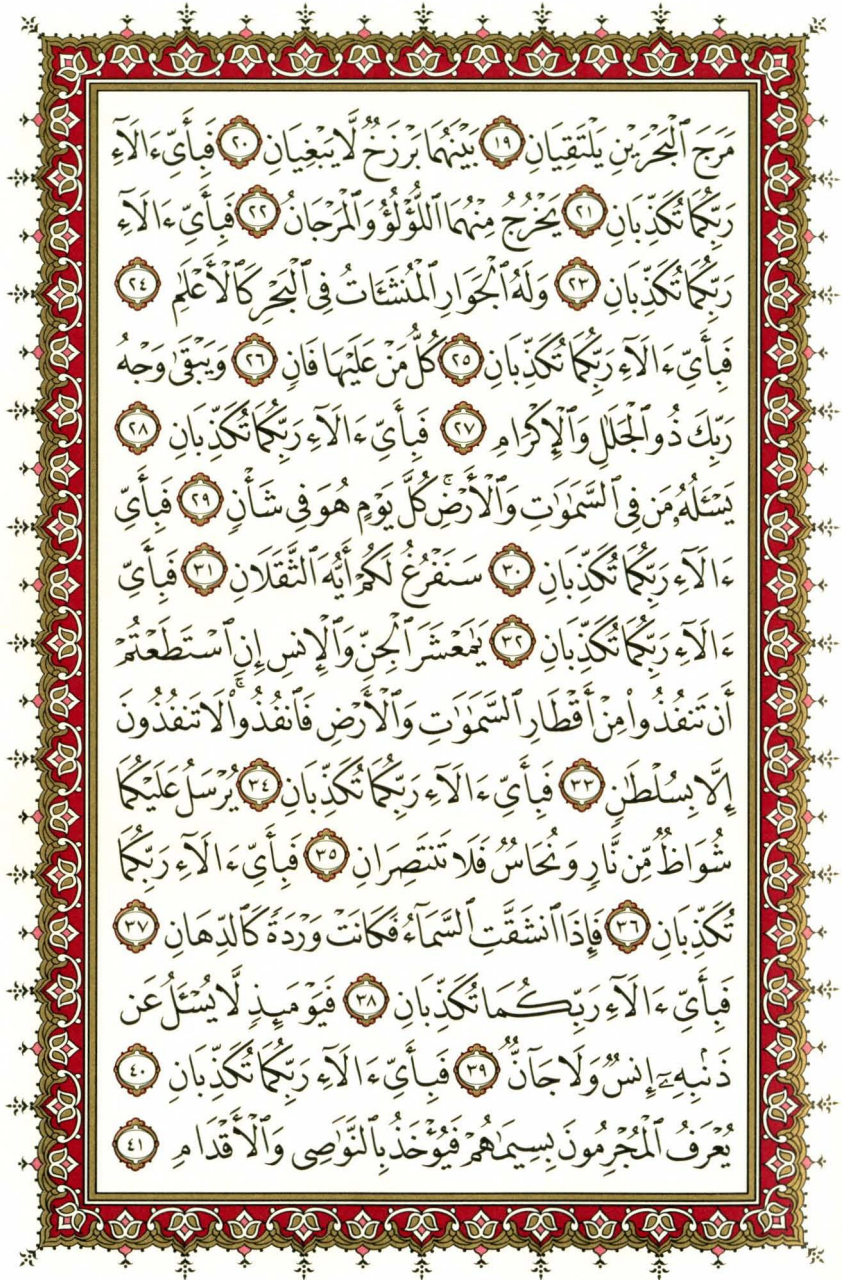 مَرَجَ ٱلْبَحْرَيْنِ يَلْتَقِيَانِ ١٩ بَيْنَهُمَا بَرْزَخٌ لَّا يَبْغِيَانِ ٢٠ فَبِأَيِّ ءَالَآءِ
رَبِّكُمَا تُكَذِّبَانِ ٢١ يَخْرُجُ مِنْهُمَا ٱللُّؤْلُؤُ وَٱلْمَرْجَانُ ٢٢ فَبِأَيِّ ءَالَآءِ
رَبِّكُمَا تُكَذِّبَانِ ٢٣ وَلَهُ ٱلْجَوَارِ ٱلْمُنشَـَٔاتُ فِى ٱلْبَحْرِ كَٱلْأَعْلَٰمِ ٢٤
فَبِأَيِّ ءَالَآءِ رَبِّكُمَا تُكَذِّبَانِ ٢٥ كُلُّ مَنْ عَلَيْهَا فَانٍ ٢٦ وَيَبْقَىٰ وَجْهُ
رَبِّكَ ذُو ٱلْجَلَٰلِ وَٱلْإِكْرَامِ ٢٧ فَبِأَيِّ ءَالَآءِ رَبِّكُمَا تُكَذِّبَانِ ٢٨
يَسْـَٔلُهُۥ مَن فِى ٱلسَّمَٰوَٰتِ وَٱلْأَرْضِ ۚ كُلَّ يَوْمٍ هُوَ فِى شَأْنٍ ٢٩ فَبِأَيِّ
ءَالَآءِ رَبِّكُمَا تُكَذِّبَانِ ٣٠ سَنَفْرُغُ لَكُمْ أَيُّهَ ٱلثَّقَلَانِ ٣١ فَبِأَيِّ
ءَالَآءِ رَبِّكُمَا تُكَذِّبَانِ ٣٢ يَٰمَعْشَرَ ٱلْجِنِّ وَٱلْإِنسِ إِنِ ٱسْتَطَعْتُمْ
أَن تَنفُذُوا۟ مِنْ أَقْطَارِ ٱلسَّمَٰوَٰتِ وَٱلْأَرْضِ فَٱنفُذُوا۟ ۚ لَا تَنفُذُونَ
إِلَّا بِسُلْطَٰنٍ ٣٣ فَبِأَيِّ ءَالَآءِ رَبِّكُمَا تُكَذِّبَانِ ٣٤ يُرْسَلُ عَلَيْكُمَا
شُوَاظٌ مِّن نَّارٍ وَنُحَاسٌ فَلَا تَنتَصِرَانِ ٣٥ فَبِأَيِّ ءَالَآءِ رَبِّكُمَا
تُكَذِّبَانِ ٣٦ فَإِذَا ٱنشَقَّتِ ٱلسَّمَآءُ فَكَانَتْ وَرْدَةً كَٱلدِّهَانِ ٣٧
فَبِأَيِّ ءَالَآءِ رَبِّكُمَا تُكَذِّبَانِ ٣٨ فَيَوْمَئِذٍ لَّا يُسْـَٔلُ عَن
ذَنۢبِهِۦٓ إِنسٌ وَلَا جَآنٌّ ٣٩ فَبِأَيِّ ءَالَآءِ رَبِّكُمَا تُكَذِّبَانِ ٤٠
يُعْرَفُ ٱلْمُجْرِمُونَ بِسِيمَٰهُمْ فَيُؤْخَذُ بِٱلنَّوَٰصِى وَٱلْأَقْدَامِ ٤١